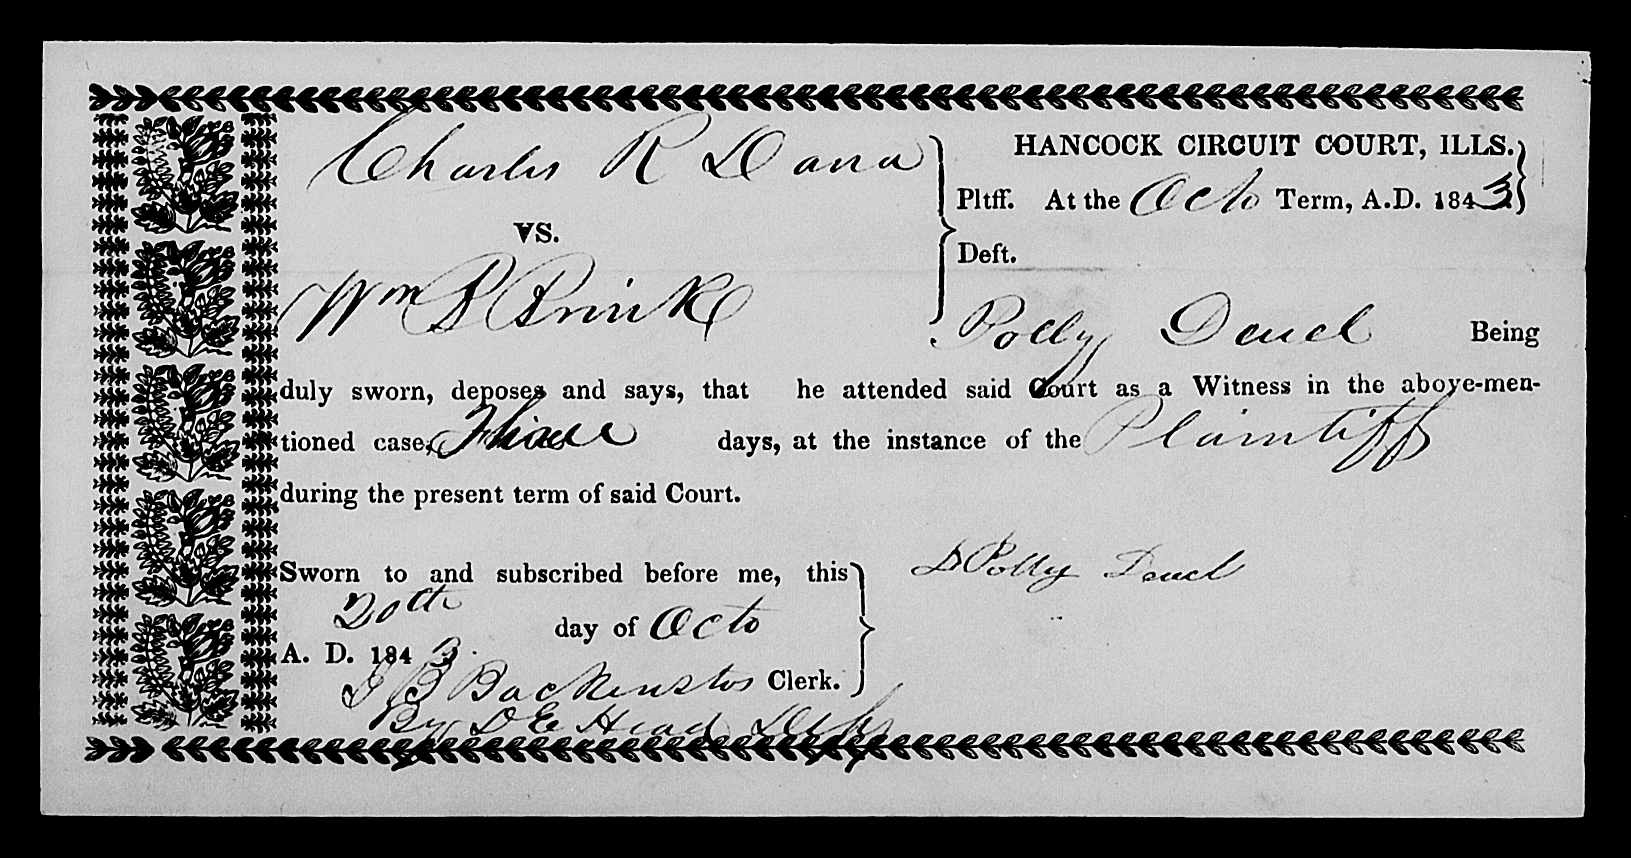 HANCOCK CIRCUIT COURT, ILLS.
Charles R Dana
Pltff. At the Octo Term, A.D. 1843
VS.
Deft.
Wm P Brink
Polly Deuel Being
duly sworn, deposes and says, that he attended said Court as a Witness in the above-men-
tioned case, days, at the instance of the Plaintiff
during the present term of said Court.
Sworn to and subscribed before me, this
Polly Deuel
20th day of Octo
A. D. 1843.
J B Backenstos Clerk.
By D E Head Depy